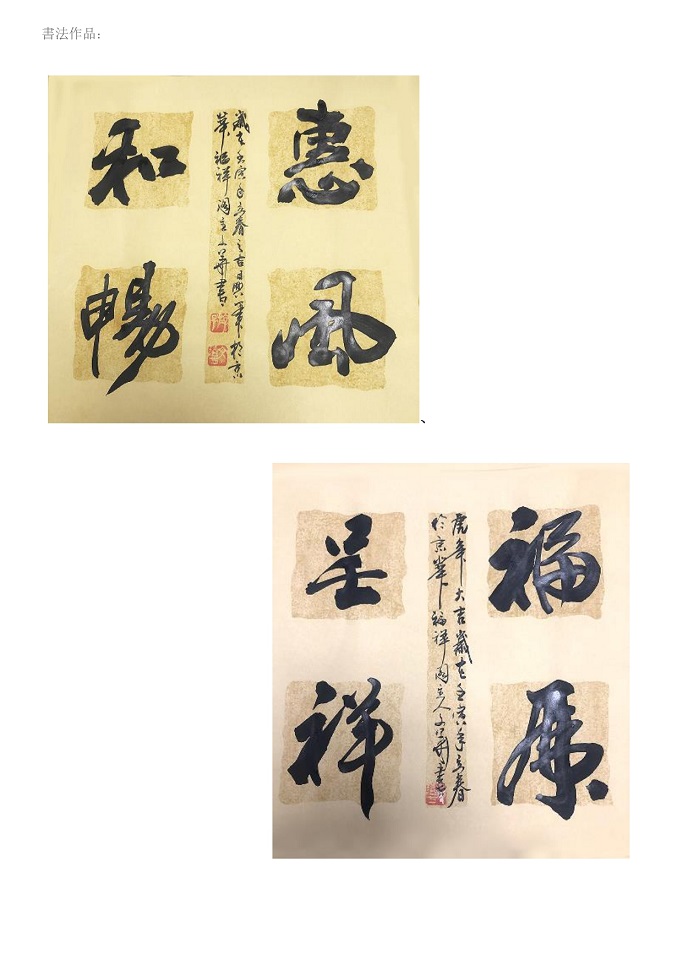 書法作品：
惠風
和暢
歲在壬寅年立春之吉日興筆於京
華福祥閣主文華書
、
福虎
呈祥
虎年大吉歲在壬寅年立春
於京華福祥閣主人文華書